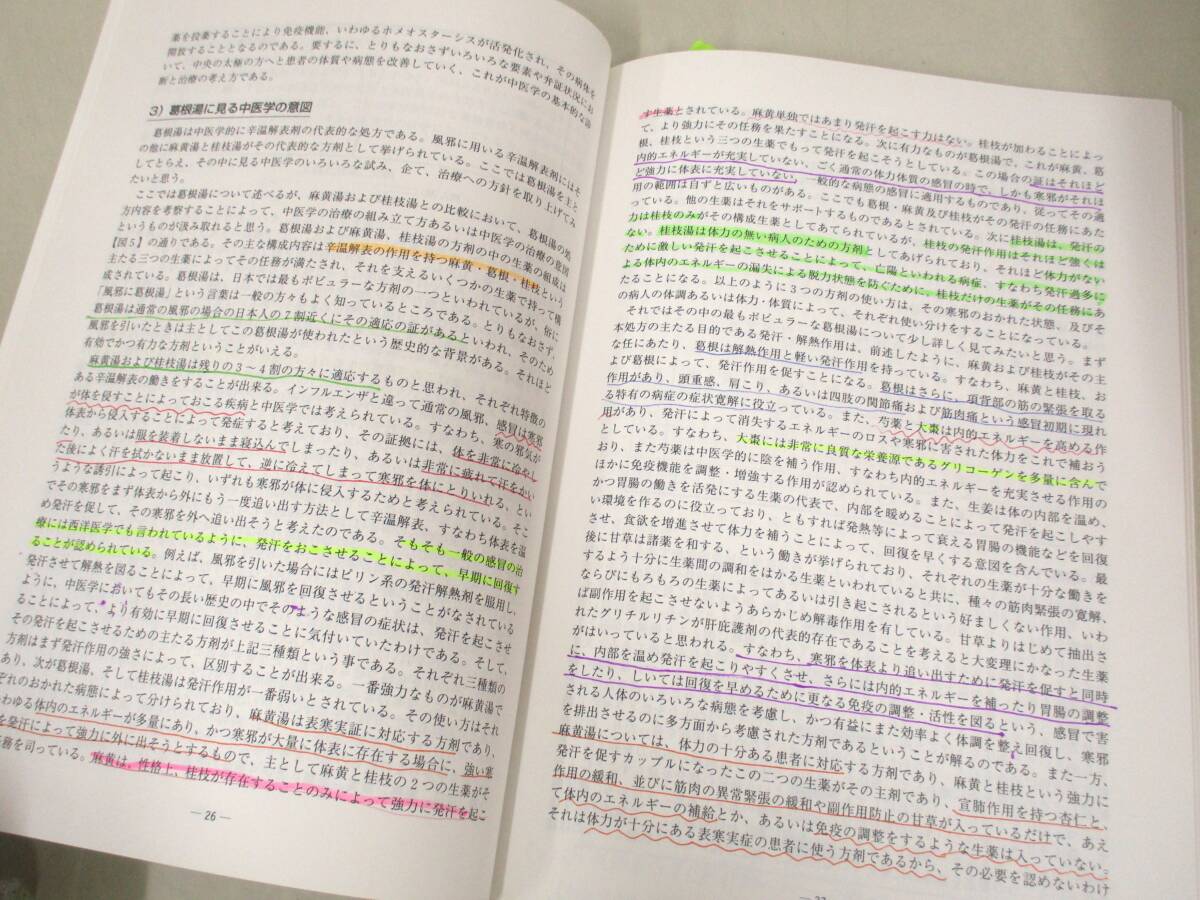 薬を投薬することにより免疫機能、いわゆるホメオスターシスが活発化され、その病体を
開放することとなるのである。要するに、とりもなおさずいろいろな要素や弁証状況にお
いて、中央の太極の方へと患者の体質や病態を改善していく、これが中医学の基本的な診
断と治療の考え方である。
3）葛根湯に見る中医学の意図
葛根湯は中医学的に辛温解表剤の代表的な処方である。風邪に用いる辛温解表剤にはそ
の他に麻黄湯と桂枝湯がその代表的な方剤として挙げられている。ここでは葛根湯を主と
してとらえ、その中に見る中医学のいろいろな試み、企て、治療への方針を取り上げてみ
たいと思う。
ここでは葛根湯について述べるが、麻黄湯および桂枝湯との比較において、葛根湯の処
方内容を考察することによって、中医学の治療の組み立て方あるいは中医学の治療の意図
というものが汲み取れると思う。葛根湯および麻黄湯、桂枝湯の方剤の中の生薬の組成は
【図5】の通りである。その主な構成内容は辛温解表の作用を持つ麻黄・葛根・桂枝という
主たる三つの生薬によってその任務が満たされ、それを支えるいくつかの生薬で持って構
成されている。葛根湯は、日本では最もポピュラーな方剤の一つといわれているが、俗に
「風邪に葛根湯」という言葉は一般の方々もよく知っているところである。とりもなおさず、
葛根湯は通常の風邪の場合の日本人の7割近くにその適応の証があるといわれ、そのため
風邪を引いたときは主としてこの葛根湯が使われたという歴史的な背景がある。それほど
有効でかつ有力な方剤ということがいえる。
麻黄湯および桂枝湯は残りの3～4割の方々に適応するものと思われ、それぞれ特徴の
ある辛温解表の働きをすることが出来る。インフルエンザと違って通常の風邪、感冒は寒邪
が体を侵すことによっておこる疾病と中医学では考えられている。すなわち、寒の邪気が
体表から侵入することによって発症すると考えており、その証拠には、体を非常に冷やし
たり、あるいは服を装着しないまま寝込んでしまったり、あるいは非常に疲れて汗をかい
た後によく汗を拭かないまま放置して、逆に冷えてしまって寒邪を体にとりいれる、とい
うような誘引によって起こり、いずれも寒邪が体に侵入するためと考えられている。そこ
でその寒邪をまず体表から外にもう一度追い出す方法として辛温解表、すなわち体表を温
め発汗を促して、その寒邪を外へ追い出そうと考えたのである。そもそも一般の感冒の治
療には西洋医学でも言われているように、発汗をおこさせることによって、早期に回復す
ることが認められている。例えば、風邪を引いた場合にはピリン系の発汗解熱剤を服用し、
発汗させて解熱を図ることによって、早期に風邪を回復させるということがなされている
ように、中医学においてもその長い歴史の中でそのような感冒の症状は、発汗を起こさせ
ることによって、より有効に早期に回復させることに気付いていたわけである。そして、
その発汗を起こさせるための主たる方剤が上記三種類という事である。それぞれ三種類の
方剤はまず発汗作用の強さによって、区別することが出来る。一番強力なものが麻黄湯で
あり、次が葛根湯、そして桂枝湯は発汗作用が一番弱いとされている。その使い方はそれ
ぞれのおかれた病態によって分けられており、麻黄湯は表寒実証に対応する方剤であり、
いわゆる体内のエネルギーが多量にあり、かつ寒邪が大量に体表に存在する場合に、強い寒
を発汗によって強力に外に出そうとするもので、主として麻黄と桂枝の2つの生薬がそ
任務を司っている。麻黄は、性格上、桂枝が存在することのみによって強力に発汗を起こ
— 26 —
す生薬とされている。麻黄単独ではあまり発汗を起こす力はない。桂枝が加わることによっ
て、より強力にその任務を果たすことになる。次に有力なものが葛根湯で、これが麻黄、葛
根、桂枝という三つの生薬でもって発汗を起こそうとしている。この場合の証はそれほど
内的エネルギーが充実していない、ごく通常の体力体質の感冒の時で、しかも寒邪がそれほ
ど強力に体表に充実していない、一般的な病態の感冒に適用するものであり、従ってその適
用の範囲は自ずと広いものがある。ここでも葛根・麻黄及び桂枝がその発汗の任務にあた
っている。他の生薬はそれをサポートするものであるとされている。次に桂枝湯は、発汗の
力は桂枝のみがその構成生薬としてあてられているが、桂枝の発汗作用はそれほど強くは
ない。桂枝湯は体力の無い病人のための方剤としてあげられており、それほど体力がない
ために激しい発汗を起こさせることによって、亡陽といわれる病症、すなわち発汗過多に
よる体内のエネルギーの漏失による脱力状態を防ぐために、桂枝だけの生薬がその任務にあ
たることになる。以上のように3つの方剤の使い方は、その寒邪のおかれた状態、及びそ
の病人の体調あるいは体力・体質によって、それぞれ使い分けをすることになっている。
それではその中の最もポピュラーな葛根湯について少し詳しく見てみたいと思う。まず
本処方の主たる目的である発汗・解熱作用は、前述したように、麻黄および桂枝がその主
な任にあたり、葛根は解熱作用と軽い発汗作用を持っている。すなわち、麻黄と桂枝、お
よび葛根によって、発汗作用を促すことになる。葛根はさらに、項背部の筋の緊張を取る
作用があり、頭重感、肩こり、あるいは四肢の関節痛および筋肉痛という感冒初期に現れ
る特有の病症の症状寛解に役立っている。また、芍薬と大棗は内的エネルギーを高める作
用があり、発汗によって消失するエネルギーのロスや寒邪に害された体力をこれで補おう
としている。すなわち、大棗には非常に良質な栄養源であるグリコーゲンを多量に含んで
おり、また芍薬は中医学的に陰を補う作用、すなわち内的エネルギーを充実させる作用の
ほかに免疫機能を調整・増強する作用が認められている。また、生姜は体の内部を温め、
かつ胃腸の働きを活発にする生薬の代表で、内部を暖めることによって発汗を起こしやす
い環境を作るのに役立っており、ともすれば発熱等によって衰える胃腸の機能などを回復
させ、食欲を増進させて体力を補うことによって、回復を早くする意図を含んでいる。最
後に甘草は諸薬を和する、という働きが挙げられており、それぞれの生薬が十分な働きを
するよう十分に生薬間の調和をはかる生薬といわれていると共に、種々の筋肉緊張の寛解、
ならびにもろもろの生薬によってあるいは引き起こされるという好ましくない作用、いわ
ば副作用を起こさせないようあらかじめ解毒作用を有している。甘草よりはじめて抽出さ
れたグリチルリチンが肝庇護剤の代表的存在であることを考えると大変理にかなった生薬
がはいっていると思われる。すなわち、寒邪を体表より追い出すために発汗を促すと同時
に、内部を温め発汗を起こりやすくさせ、さらには内的エネルギーを補ったり胃腸の調整
をしたり、しいては回復を早めるために更なる免疫の調整・活性を図るという、感冒で害
される人体のいろいろな病態を考慮し、かつ有益にまた効率よく体調を整え回復し、寒邪
を排出させるのに多方面から考慮された方剤であるということが解るのである。また一方、
麻黄湯については、体力の十分ある患者に対応する方剤であり、麻黄と桂枝という強力に
発汗を促すカップルになったこの二つの生薬がその主剤であり、宣肺作用を持つ杏仁と、
作用の緩和、並びに筋肉の異常緊張の緩和や副作用防止の甘草が入っているだけで、あえ
て体内のエネルギーの補給とか、あるいは免疫の調整をするような生薬は入っていない。
それは体力が十分にある表寒実症の患者に使う方剤であるから、その必要を認めないわけ